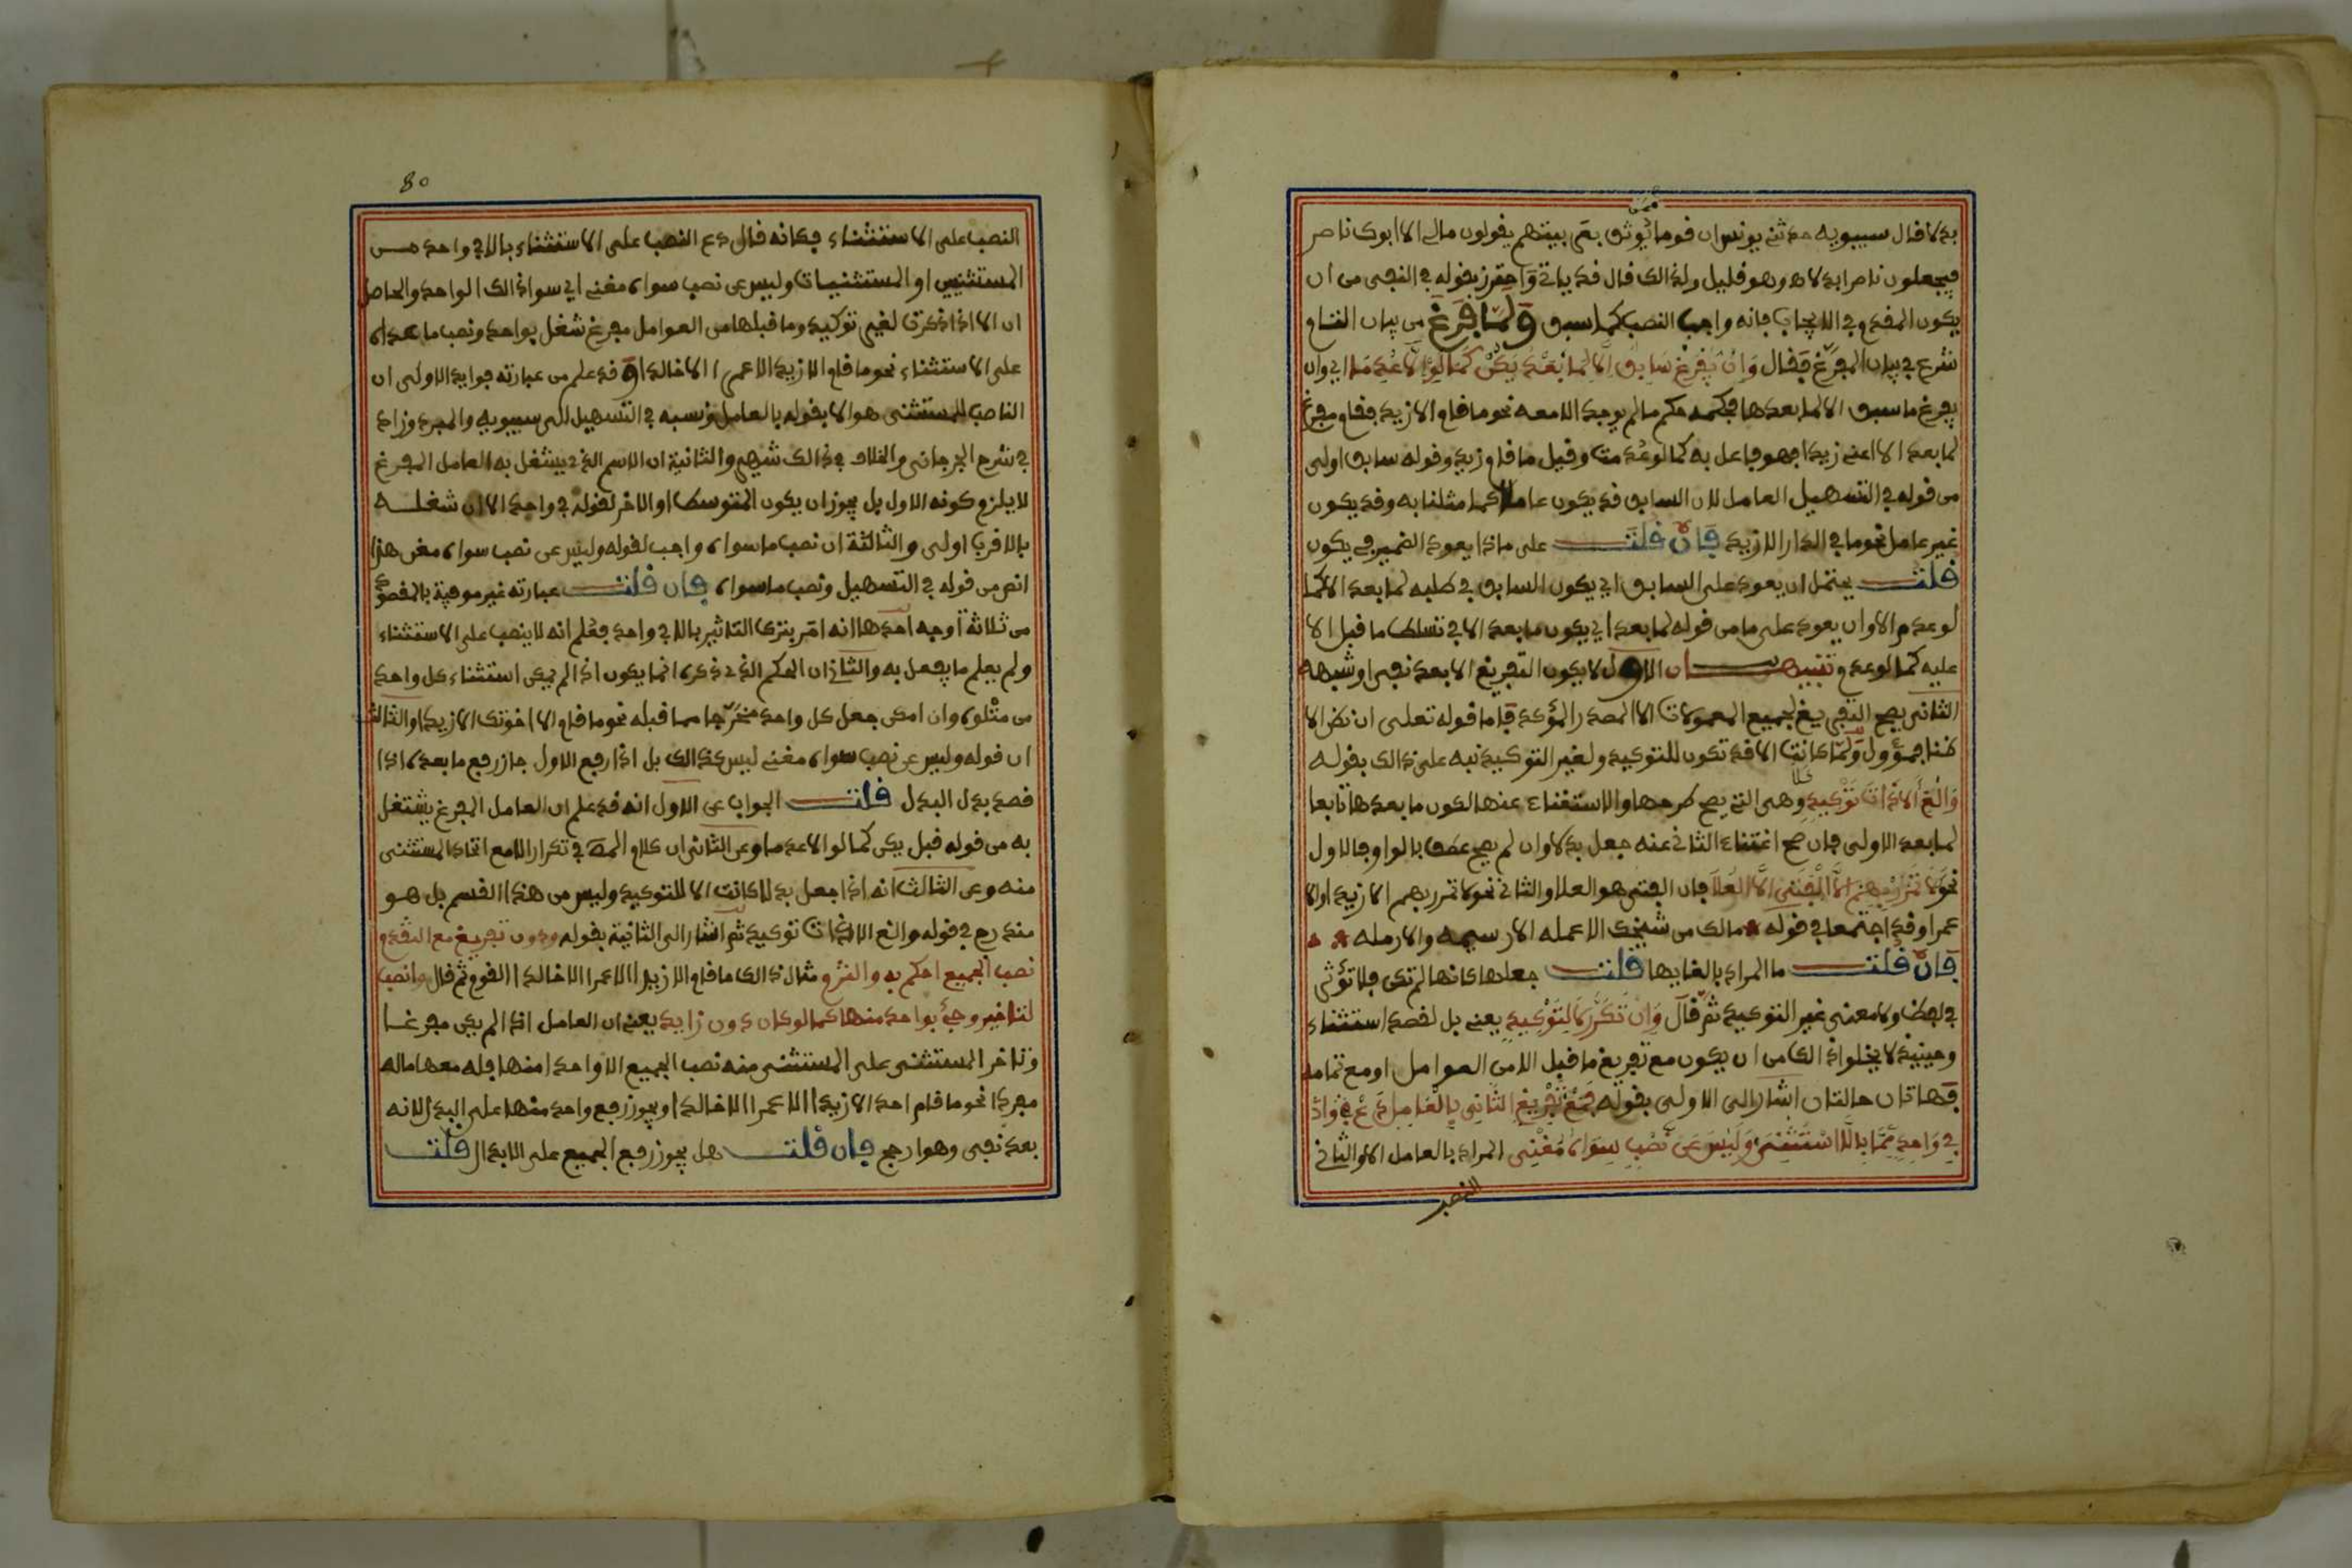 بدلا قال سيبويه حدثني يونس ان قوما يوثق بعربيتهم يقولون مالي الا ابوك ناصر
فيجعلون ناصرا بدلا اه وهو قليل ولذالك قال قد ياتي واحترز بقوله في النفي من ان
يكون المقدم في الايجاب فانه واجب النصب كما سبق ولما فرغ من بيان التام
شرع في بيان المفرغ فقال وَاِنْ يُفَرَّغْ سَابِقٌ اِلَّا لِمَا بَعْدُ يَكُنْ كَمَا لَوِ اِلَّا عُدِمَا اي وان
يفرغ ما سبق الا لما بعدها فحكمه حكم ما لم يوجد الا معه نحو ما قام الا زيد فقام مفرغ
لما بعد الا اعني زيدا فهو فاعل به كما لو عدمت وقيل ما قام زيد وقوله سابق اولى
من قوله في التسهيل العامل لان السابق قد يكون عاملا كما مثلنا به وقد يكون
غير عامل نحو ما في الدار الا زيد فَاِنْ قُلْتَ على ماذا يعود الضمير في يكون
قلت يحتمل ان يعود على السابق اي يكون السابق في طلبه لما بعد الا كما
لو عدم الا وان يعود على ما من قوله لما بعد اي يكون ما بعد الا في تسلط ما قبل الا
عليه كما لو عدم تنبيهان الاول لا يكون التفريغ الا بعد نفي او شبهه
الثاني يصح التفريغ لجميع المعمولات الا المصدر المؤكد فاما قوله تعلى ان نظن الا
ظنا فمؤول ولما كانت الا قد تكون للتوكيد ولغير التوكيد نبه على ذالك بقوله
وَاَلْغِ اِلَّا ذَاتَ تَوْكِيدٍ وهي التي يصح طرحها والاستغناء عنها لكون ما بعدها تابعا
لما بعد الاولى فان صح اغتناء الثاني عنه جعل بدلا وان لم يصح عطف بالواو فالاول
نحو لَا تَمْرُرْ بِهِمْ اِلَّا الْفَتَى اِلَّا الْعَلَا فان الفتى هو العلا والثاني نحو لا تمرر بهم الا زيد او الا
عمرا وقد اجتمعا في قوله مالك من شيخك الا عمله الا رسيمه والا رمله
فَاِنْ قُلْتَ ما المراد بالغايها قلت جعلها كانها لم تكن فلا تؤثر
في لفظ ولا معنى غير التوكيد ثم قال وَاِنْ تُكَرَّرْ لَا لِتَوْكِيدٍ يعني بل لقصد استثناء
وحينيذ لا يخلوا ذالك من ان يكون مع تفريغ ما قبل الا من العوامل او مع تمامه
فهاتان حالتان اشار الى الاولى بقوله فَمَعْ تَفْرِيغٍ التَّاثِيرَ بِالْعَامِلِ دَعْ
فِي وَاحِدٍ مِمَّا بِالَّا اسْتُثْنِي وَلَيْسَ عَنْ نَصْبِ سِوَاهُ مُغْنِي المراد بالعامل الا والتاثير
النصب
80
النصب على الاستثناء فكانه قال دع النصب على الاستثناء بالا في واحد من
المستثنيين او المستثنيات وليس عن نصب سواه مغني اي سوا ذالك الواحد والحاصل
ان الا اذا ذكرت لغير توكيد وما قبلها من العوامل مفرغ شغل بواحد ونصب ما عداه
على الاستثناء نحو ما قام الا زيد الا عمرا الا خالدا وقد علم من عبارته فوايد الاولى ان
الناصب للمستثنى هو الا بقوله بالعامل ونسبه في التسهيل الى سيبويه والمبرد وزاد
في شرح الجرجاني والخلاف في ذالك شهير والثانية ان الاسم الذي يشتغل به العامل المفرغ
لا يلزم كونه الاول بل يجوز ان يكون المتوسط او الاخر لقوله في واحد الا ان شغله
بالاقرب اولى والثالثة ان نصب ما سواه واجب لقوله وليس عن نصب سواه مغن هذا
انص من قوله في التسهيل ونصب ما سواه فان قلت عبارته غير موفية بالمقصود
من ثلاثة اوجه احدها انه امر بترك التاثير بالا في واحد فعلم انه لا ينصب على الاستثناء
ولم يعلم ما يفعل به والثاني ان الحكم الذي ذكره انما يكون اذا لم يمكن استثناء كل واحد
من متلوه وان امكن جعل كل واحد مخرجا مما قبله نحو ما قام الا اخوتك الا زيدا والثالث
ان قوله وليس عن نصب سواه مغني ليس كذالك بل اذا رفع الاول جاز رفع ما بعده اذا
قصد بدل البدل قلت الجواب عن الاول انه قد علم ان العامل المفرغ يشتغل
به من قوله قبل يكن كما لو الا عدما وعن الثاني ان كلام المص في تكرار الا مع اتحاد المستثنى
منه وعن الثالث انه اذا جعل بدلا كانت الا للتوكيد وليس من هذا القسم بل هو
مندرج في قوله والغ الا ذات توكيد ثم اشار الى الثانية بقوله ودون تفريغ مع التقدم
نصب الجميع احكم به والتزم مثال ذالك ما قام الا زيدا الا عمرا الا خالدا القوم ثم قال وانصب
لتاخير وجئ بواحد منها كما لو كان دون زايد يعني ان العامل اذا لم يكن مفرغا
وتاخر المستثنى على المستثنى منه نصب الجميع الا واحدا منها فله معها ماله
مفردا نحو ما قام احد الا زيدا الا عمرا الا خالدا ويجوز رفع واحد منها على البدل لانه
بعد نفي وهو ارجح فان قلت هل يجوز رفع الجميع على الابدال قلت